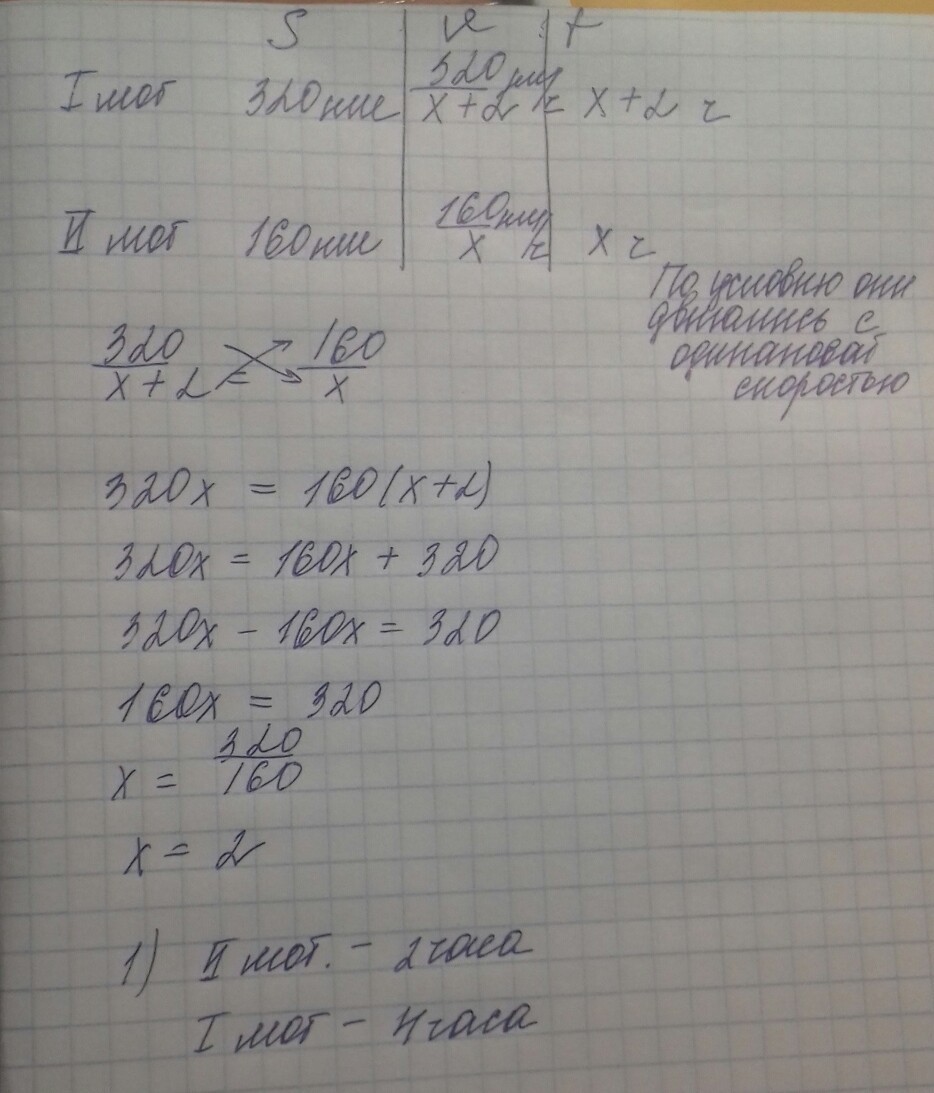 S v t
I мот 320 км 320/x+2 км/ч x+2 ч
II мот 160 км 160/x км/ч x ч
По условию они
двигались с
одинаковой
скоростью
320/x+2 = 160/x
320x = 160(x+2)
320x = 160x + 320
320x - 160x = 320
160x = 320
x = 320/160
x = 2
1) II мот. - 2 часа
I мот - 4 часа